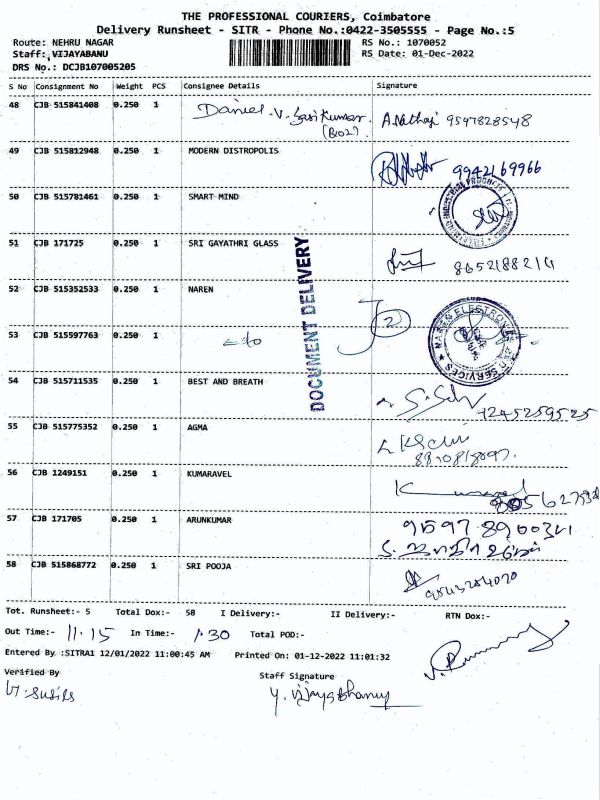 THE PROFESSIONAL COURIERS, Coimbatore
Delivery Runsheet - SITR - Phone No.:0422-3505555 - Page No.:5
Route: NEHRU NAGAR RS No.: 1070052
Staff: VIJAYABANU RS Date: 01-Dec-2022
DRS No.: DCJB107005205
S No Consignment No Weight PCS Consignee Details Signature
48 CJB 515841408 0.250 1 Daniel.V.Sasikumar A.Nathaji 9597828548
49 CJB 515812948 0.250 1 MODERN DISTROPOLIS 9942169966
50 CJB 515781461 0.250 1 SMART MIND
51 CJB 171725 0.250 1 SRI GAYATHRI GLASS 8652188214
52 CJB 515352533 0.250 1 NAREN 2
DOCUMENT DELIVERY
53 CJB 515597763 0.250 1 do
54 CJB 515711535 0.250 1 BEST AND BREATH
55 CJB 515775352 0.250 1 AGMA
56 CJB 1249151 0.250 1 KUMARAVEL
57 CJB 171705 0.250 1 ARUNKUMAR
58 CJB 515868772 0.250 1 SRI POOJA
Tot. Runsheet:- 5 Total Dox:- 58 I Delivery:- II Delivery:- RTN Dox:-
Out Time:- 11.15 In Time:- 1.30 Total POD:-
Entered By :SITRA1 12/01/2022 11:00:45 AM Printed On: 01-12-2022 11:01:32
Verified By Staff Signature
y. Vijaya Bhanuy